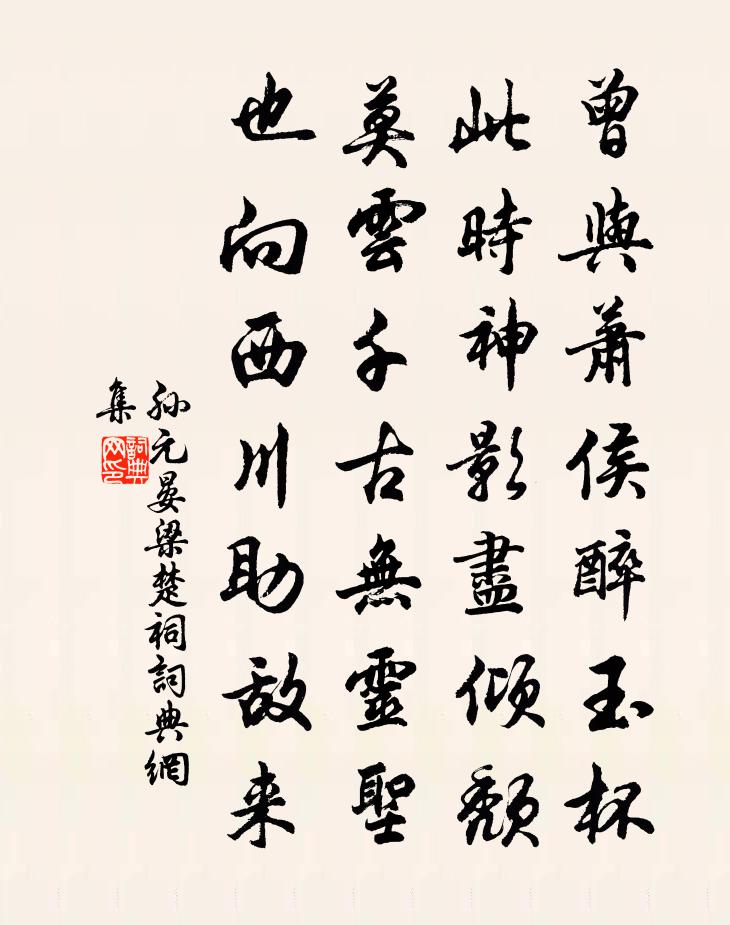 曾與蕭侯醉玉杯
此時神影盡傾頹
莫雲千古無靈聖
也向西川助敌来
孙元晏梁楚祠詞典網
集
詞典网印